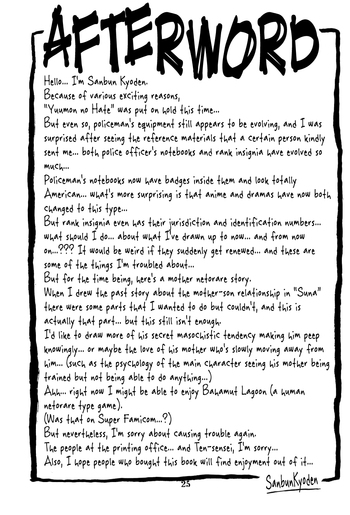 AFTERWORD
Hello... I'm Sanbun Kyoden.
Because of various exciting reasons,
"Yuumon no Hate" was put on hold this time...
But even so, policeman's equipment still appears to be evolving, and I was
surprised after seeing the reference materials that a certain person kindly
sent me... both police officer's notebooks and rank insignia have evolved so
much...
Policeman's notebooks now have badges inside them and look totally
American... what's more surprising is that anime and dramas have now both
changed to this type...
But rank insignia even has their jurisdiction and identification numbers...
what should I do... about what I've drawn up to now... and from now
on...??? It would be weird if they suddenly get renewed... and these are
some of the things I'm troubled about...
But for the time being, here's a mother netorare story.
When I drew the past story about the mother-son relationship in "Suna"
there were some parts that I wanted to do but couldn't, and this is
actually that part... but this still isn't enough.
I'd like to draw more of his secret masochistic tendency making him peep
knowingly... or maybe the love of his mother who's slowly moving away from
him... (such as the psychology of the main character seeing his mother being
trained but not being able to do anything...)
Ahh... right now I might be able to enjoy Bahamut Lagoon (a human
netorare type game).
(Was that on Super Famicom...?)
But nevertheless, I'm sorry about causing trouble again.
The people at the printing office... and Ten-sensei, I'm sorry...
Also, I hope people who bought this book will find enjoyment out of it...
25
SanbunKyoden